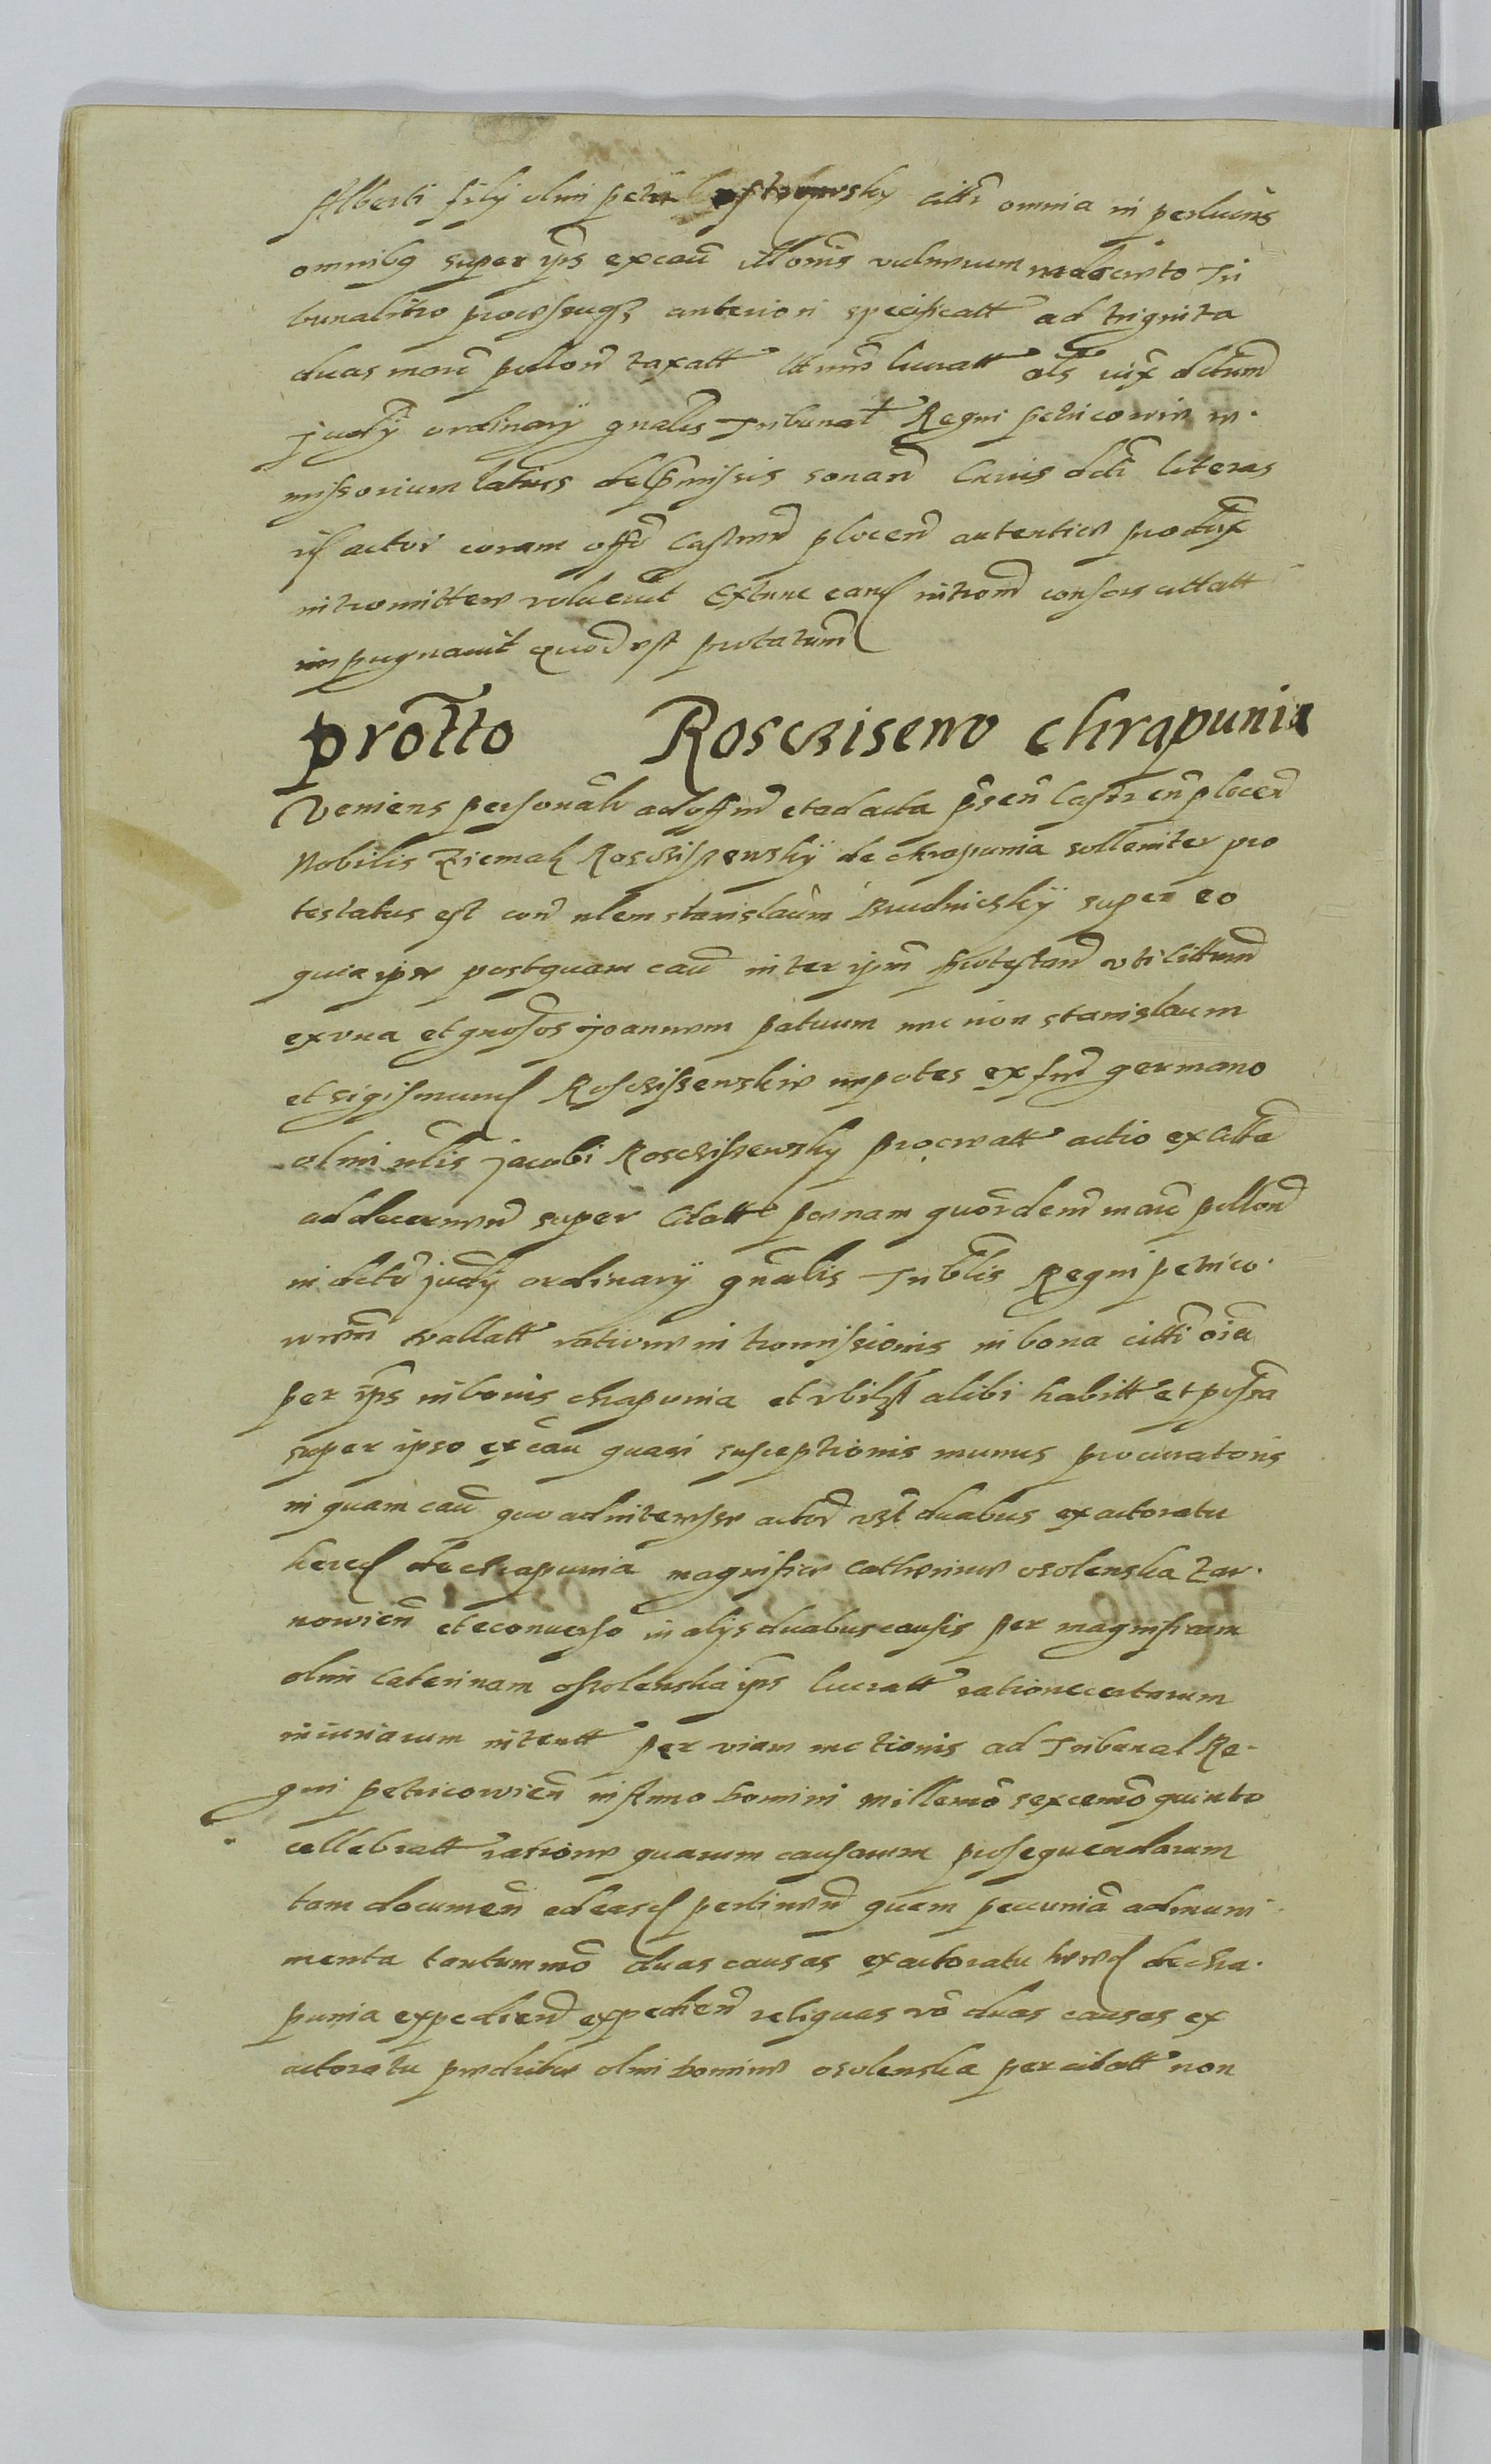 Alberti filij olim petri citti omnia in pecuniis
omnibq super ips excau illonis vulnerum ex decreto Tri
bunalitio processuqz anteriori specificatt ad triginta
duas marc pollon taxatt lucratt als iux dictum
judij ordinarij gnalis Tribunat Regni petricovien re
missorium latius de pmissis sonan Cuius dcti literas
is actor coram offo Castren plocen autentice produx
intromittere voluerat Extunc eand introm consors cittatt
impugnavit quod est protatum
protto Roscziseno chrapunia
Veniens personalr ad offm et ad acta psen Castren plocen
Nobilis Ziemak Rosciszewskij de chrapunia solleniter pro
testatus est con nlem stanislaum Rudnickij super eo
quia ipse postquam cau inter ipm protestan uti cittum
ex una et gnosos joannem patuum nec non stanislaum
et sigismund Rosciszewskie nepotes ex fre germano
olim nlis jacobi Rosciszewsky procreatt actio ex citta
ad decernen super citatt penam quordem marc pollon
in dcto judij ordinarij gnalis Triblis Regni petrico
wien vallatt ratione intromissionis in bona citti oia
per ips in bonis chrapunia et ubilzt alibi habitt et possa
super ipso ex cau quasi susceptionis munus procuratoris
in quam cau quo adnitensse actor vzt duabus ex actoratu
hered de chrapunia magnifice Catherine osolenska Tar
nowien et econverso in alijs duabus causis per magnificam
olim Caterinam ossolenska ips lucratt ratione certarum
iniuriarum intentt per viam inctionis ad Tribunal Re-
gni petricowien in Anno Domini millemo sexcemo quinto
cellebratt ratione quarum causarum prosequendarum
tam documen ad easd pertinen quam pecunia ad muni
menta tantummo duas causas ex actoratu hered de chra
punia expedien expedien reliquas vo duas causas ex
actoratu predicte olim Domine osolenska per citatt non